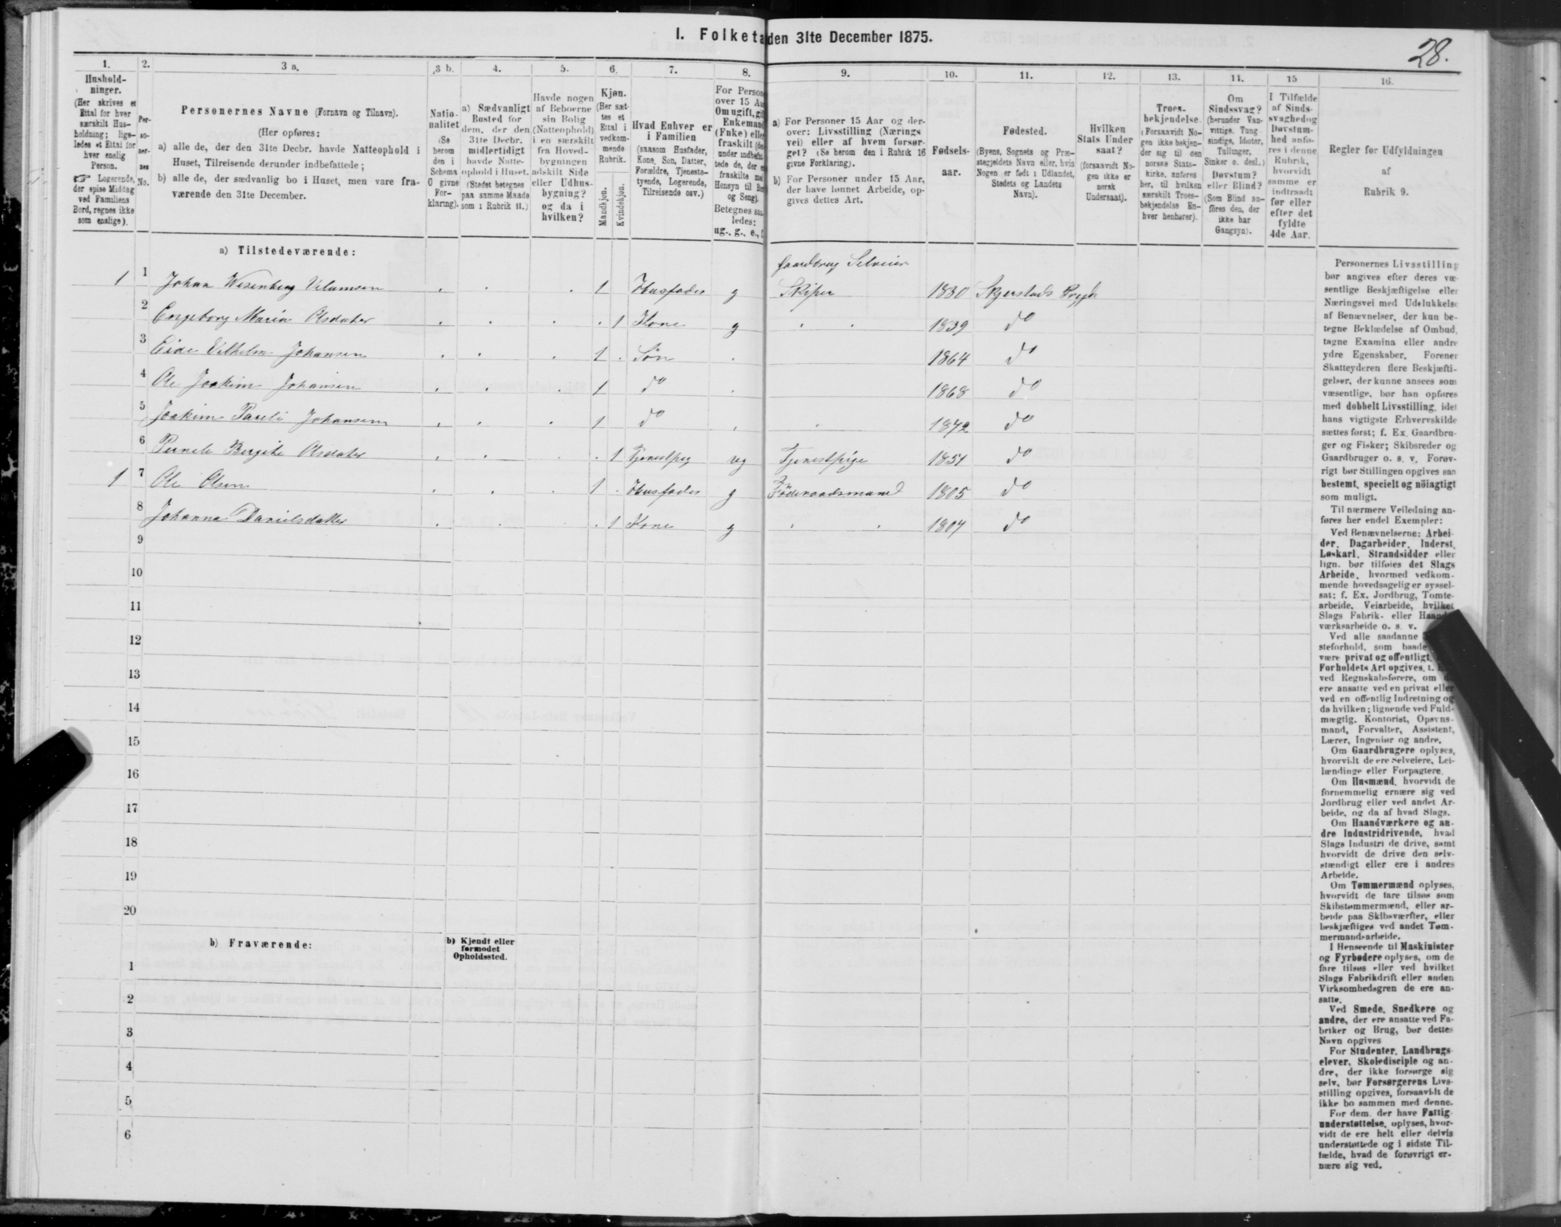 I. Folketæ den 31te December 1875.
28.
1.
Hushold-
ninger.
(Her skrives et
Ettal for hver
særskilt Hus-
holdning; lige-
ledes et Ettal for
hver enslig
Person.
☞ Logerende,
der spise Middag
ved Familiens
Bord, regnes ikke
som enslige).
2.
Per-
so-
ner-
nes
No.
3 a.
Personernes Navne (Fornavn og Tilnavn).
(Her opføres:
a) alle de, der den 31te Decbr. havde Natteophold i
Huset, Tilreisende derunder indbefattede;
b) alle de, der sædvanlig bo i Huset, men vare fra-
værende den 31te December.
3 b.
Natio-
nalitet
(Se
herom
den i
Schema
O givne
For-
klaring).
4.
a) Sædvanligt
Bosted for
dem, der den
31te Decbr.
midlertidigt
havde Natte-
ophold i Huset.
(Stedet betegnes
paa samme Maade
som i Rubrik 11.)
5.
Havde nogen
af Beboerne
sin Bolig
(Natteophold)
i en særskilt
fra Hoved-
bygningen
adskilt Side
eller Udhus-
bygning?
og da i
hvilken?
6.
Kjøn.
(Her sæt-
tes et
Ettal i
vedkom-
mende
Rubrik.
Mandkjøn.
Kvindekjøn.
7.
Hvad Enhver er
i Familien
(saasom Husfader,
Kone, Søn, Datter,
Forældre, Tjenesta-
tyende, Logerende,
Tilreisende osv.)
8.
For Person
over 15 Aa
Om ugift, gi
Enkemand
(Enke) elle
fraskilt (de
under indbefat-
tede de, der e
fraskilte med
Hensyn til Bo
og Seng).
Betegnes saa
ledes:
ug., g., e., f
9.
a) For Personer 15 Aar og der-
over: Livsstilling (Nærings
vei) eller af hvem forsør-
get? (Se herom den i Rubrik 16
givne Forklaring).
b) For Personer under 15 Aar,
der have lønnet Arbeide, op-
gives dettes Art.
10.
Fødsels-
aar.
11.
Fødested.
(Byens, Sognets og Præ-
stegjeldets Navn eller, hvis
Nogen er født i Udlandet,
Stedets og Landets
Navn).
12.
Hvilken
Stats Under
saat?
(forsaavidt No-
gen ikke er
norsk
Undersaat).
13.
Troes-
bekjendelse.
(Forsaavidt No-
gen ikke bekjen-
der sig til den
norske Stats-
kirke, anføres
her, til hvilken
særskilt Troes-
bekjendelse En-
hver henhører).
14.
Om
Sindssvag?
(herunder Van-
vittige, Tung
sindige, Idioter,
Tullinger,
Sinker o. desl.)
Døvstum?
eller Blind?
(Som Blind an-
føres den, der
ikke har
Gangsyn).
15
I Tilfælde
af Sinds-
svaghed og
Døvstum-
hed anfø-
res i denne
Rubrik,
hvorvidt
samme er
indtraadt
før eller
efter det
fyldte
4de Aar.
16.
Regler for Udfyldningen
af
Rubrik 9.
a) Tilstedeværende:
Gaardbrug Selveier
1 1 Johan Wesenberg Vilumsen 1 Husfader g Skiper 1830 Skjerstads Prgjl
2 Engeborg Maria Olsdater 1 Kone g 1839 do
3 Eide Vilhelm Johansen 1 Søn 1864 do
4 Ole Joakim Johansen 1 do 1868 do
5 Joakim Pareli Johansen 1 do 1872 do
6 Pernele Bergite Olsdater 1 Tjenestpig ug Tjenestpige 1851 do
1 7 Ole Olsen 1 Husfader g Föderaadsmand 1805 do
8 Johanna Danielsdatter 1 Kone g 1807 do
9
10
11
12
13
14
15
16
17
18
19
20
b) Fraværende:
b) Kjendt eller
formodet
Opholdssted.
1
2
3
4
5
6
Personernes Livsstilling
bør angives efter deres væ-
sentlige Beskjæftigelse eller
Næringsvei med Udelukkelse
af Benævnelser, der kun be-
tegne Beklædelse af Ombud,
tagne Examina eller andre
ydre Egenskaber. Forener
Skatteyderen flere Beskjæfti-
gelser, der kunne ansees som
væsentlige, bør han opføres
med dobbelt Livsstilling, idet
hans vigtigste Erhvervskilde
sættes først; f. Ex. Gaardbru-
ger og Fisker; Skibsreder og
Gaardbruger o. s. v. Forøv-
rigt bør Stillingen opgives saa
bestemt, specielt og nöiagtigt
som muligt.
Til nærmere Veiledning an-
føres her endel Exempler:
Ved Benævnelserne: Arbei-
der, Dagarbeider, Inderst,
Løskarl, Strandsidder eller
lign. bør tilføies det Slags
Arbeide, hvormed vedkom-
mende hovedsagelig er syssel-
sat; f. Ex. Jordbrug, Tomte-
arbeide, Veiarbeide, hvilket
Slags Fabrik- eller Haand-
værksarbeide o. s. v.
Ved alle saadanne
steforhold, som baade
være privat og offentligt,
Forholdets Art opgives, t.
ved Regnskabsførere, om
ere ansatte ved en privat eller
ved en offentlig Indretning og
da hvilken; lignende ved Fuld-
mægtig, Kontorist, Opsyns-
mand, Forvalter, Assistent,
Lærer, Ingeniør og andre.
Om Gaardbrugere oplyses,
hvorvidt de ere Selveiere, Lei-
lændinge eller Forpagtere.
Om Husmænd, hvorvidt de
fornemmelig ernære sig ved
Jordbrug eller ved andet Ar-
beide, og da af hvad Slags.
Om Haandværkere og an-
dre Industridrivende, hvad
Slags Industri de drive, samt
hvorvidt de drive den selv-
stændigt eller ere i andres
Arbeide.
Om Tømmermænd oplyses,
hvorvidt de fare tilsøs som
Skibstømmermænd, eller ar-
beide paa Skibsværfter, eller
beskjæftiges ved andet Tøm-
mermandsarbeide.
I Henseende til Maskinister
og Fyrbødere oplyses, om de
fare tilsøs eller ved hvilket
Slags Fabrikdrift eller anden
Virksomhedsgren de ere an-
satte.
Ved Smede, Snedkere og
andre, der ere ansatte ved Fa-
briker og Brug, bør dettes
Navn opgives
For Studenter, Landbrugs-
elever, Skoledisciple og an-
dre, der ikke forsørge sig
selv, bør Forsørgerens Livs-
stilling opgives, forsaavidt de
ikke bo sammen med denne.
For dem, der have Fattig-
understøttelse, oplyses, hvor-
vidt de ere helt eller delvis
understøttede og i sidste Til-
fælde, hvad de forøvrigt er-
nære sig ved.